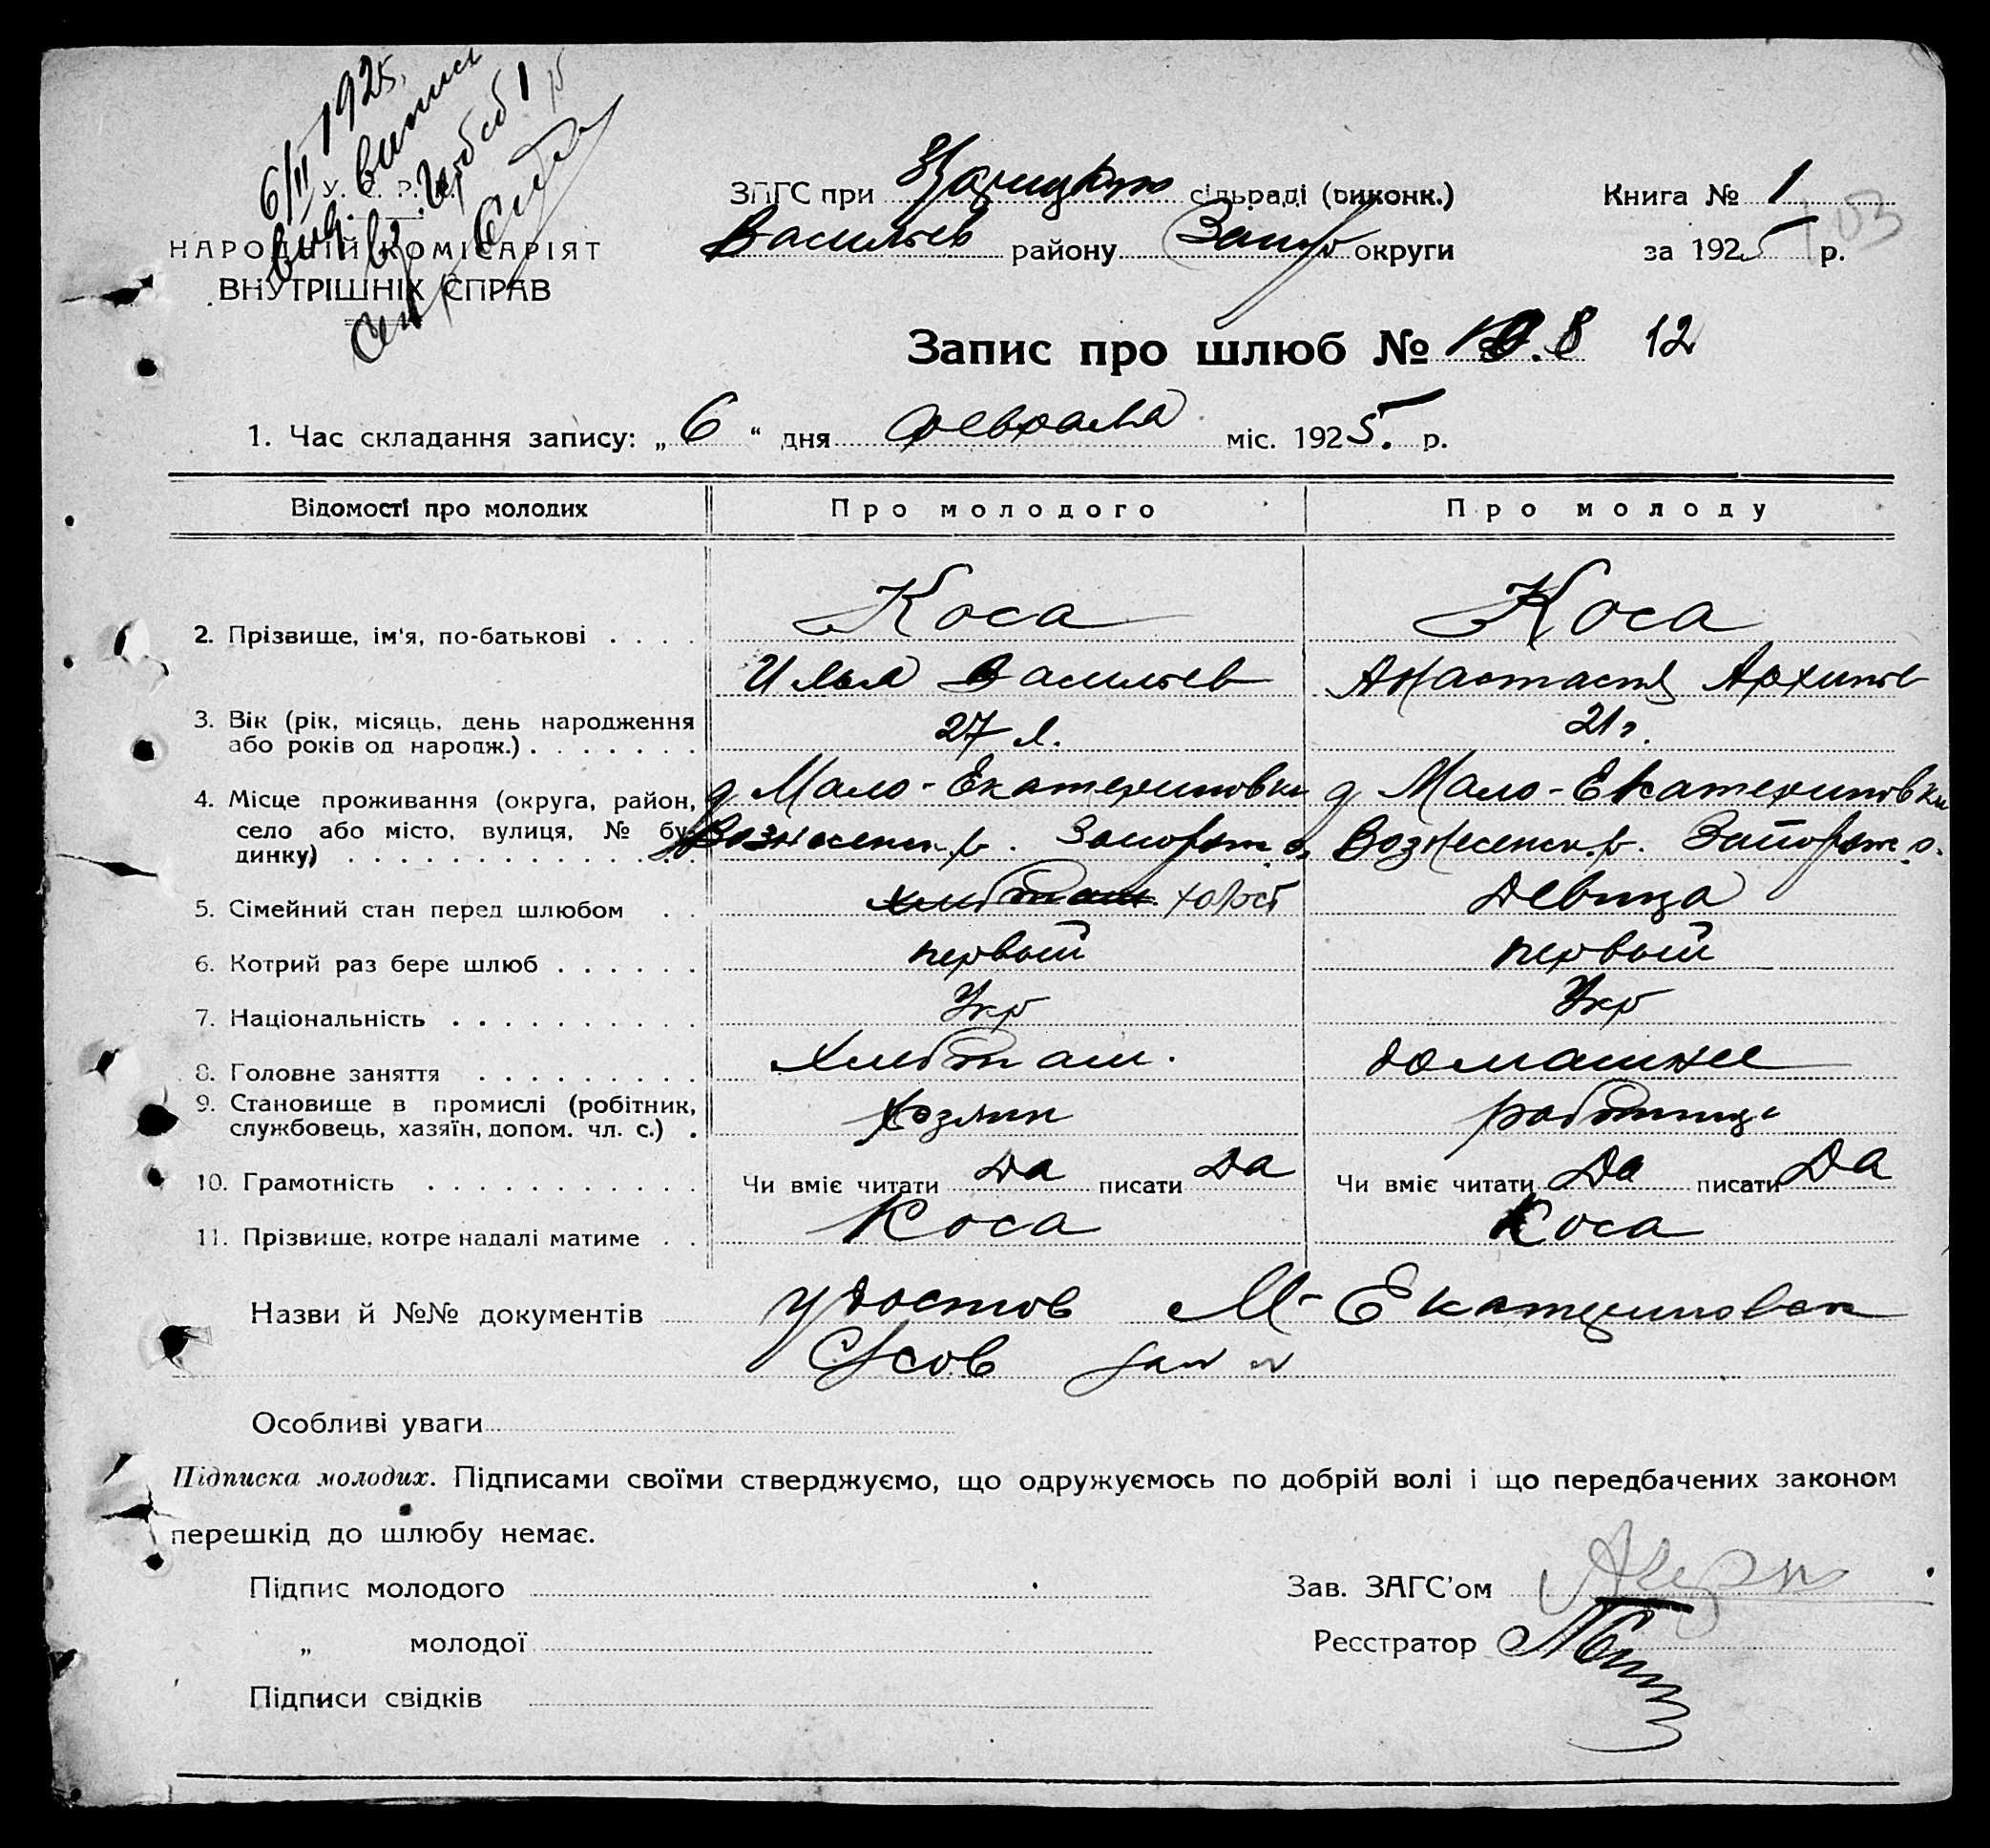 6/II 1925.
вид. випись
У. С. Р. Р.
НАРОДНІЙ КОМІСАРІЯТ
ВНУТРІШНІХ СПРАВ
ЗАГС при сільраді (виконк.)
Васильев району Запор округи
Книга № 1
103
за 1925 р.
Запис про шлюб № 8 12
1. Час складання запису: „ 6 “ дня февраля міс. 1925. р.
Відомості про молодих Про молодого Про молоду
2. Прізвище, ім'я, по-батькові . . . . Коса Коса
Илья Васильев Анастасия Архипов
3. Вік (рік, місяць, день народження
або років од нарорж.) . . . . . . . 27 л. 21 г.
4. Місце проживання (округа, район, д Мало-Екатериновки д Мало-Екатериновки
село або місто, вулиця, № бу- Вознесенск. р. Запорож. о. Вознесенск. р. Запорож. о.
динку) . . . . . . . . . . . . . .
5. Сімейний стан перед шлюбом . . хлебопаш. холост девица
6. Котрий раз бере шлюб . . . . . . первый первый
7. Національність . . . . . . . . . . Укр Укр
8. Головне заняття . . . . . . . . . Хлебопаш. домашнее
9. Становище в промислі (робітник,
службовець, хазяїн, допом. чл. с.) . Хозяин работница
10. Грамотність . . . . . . . . . . . Чи вміє читати Да писати Да Чи вміє читати Да писати Да
11. Прізвище, котре надалі матиме . . Коса Коса
Назви й №№ документів удостов М-Екатериновск
С/сов
Особливі уваги
Підписка молодих. Підписами своїми стверджуємо, що одружуємось по добрій волі і що передбачених законом
перешкід до шлюбу немає.
Підпис молодого
Зав. ЗАГС'ом
„ молодої
Реєстратор
Підписи свідків